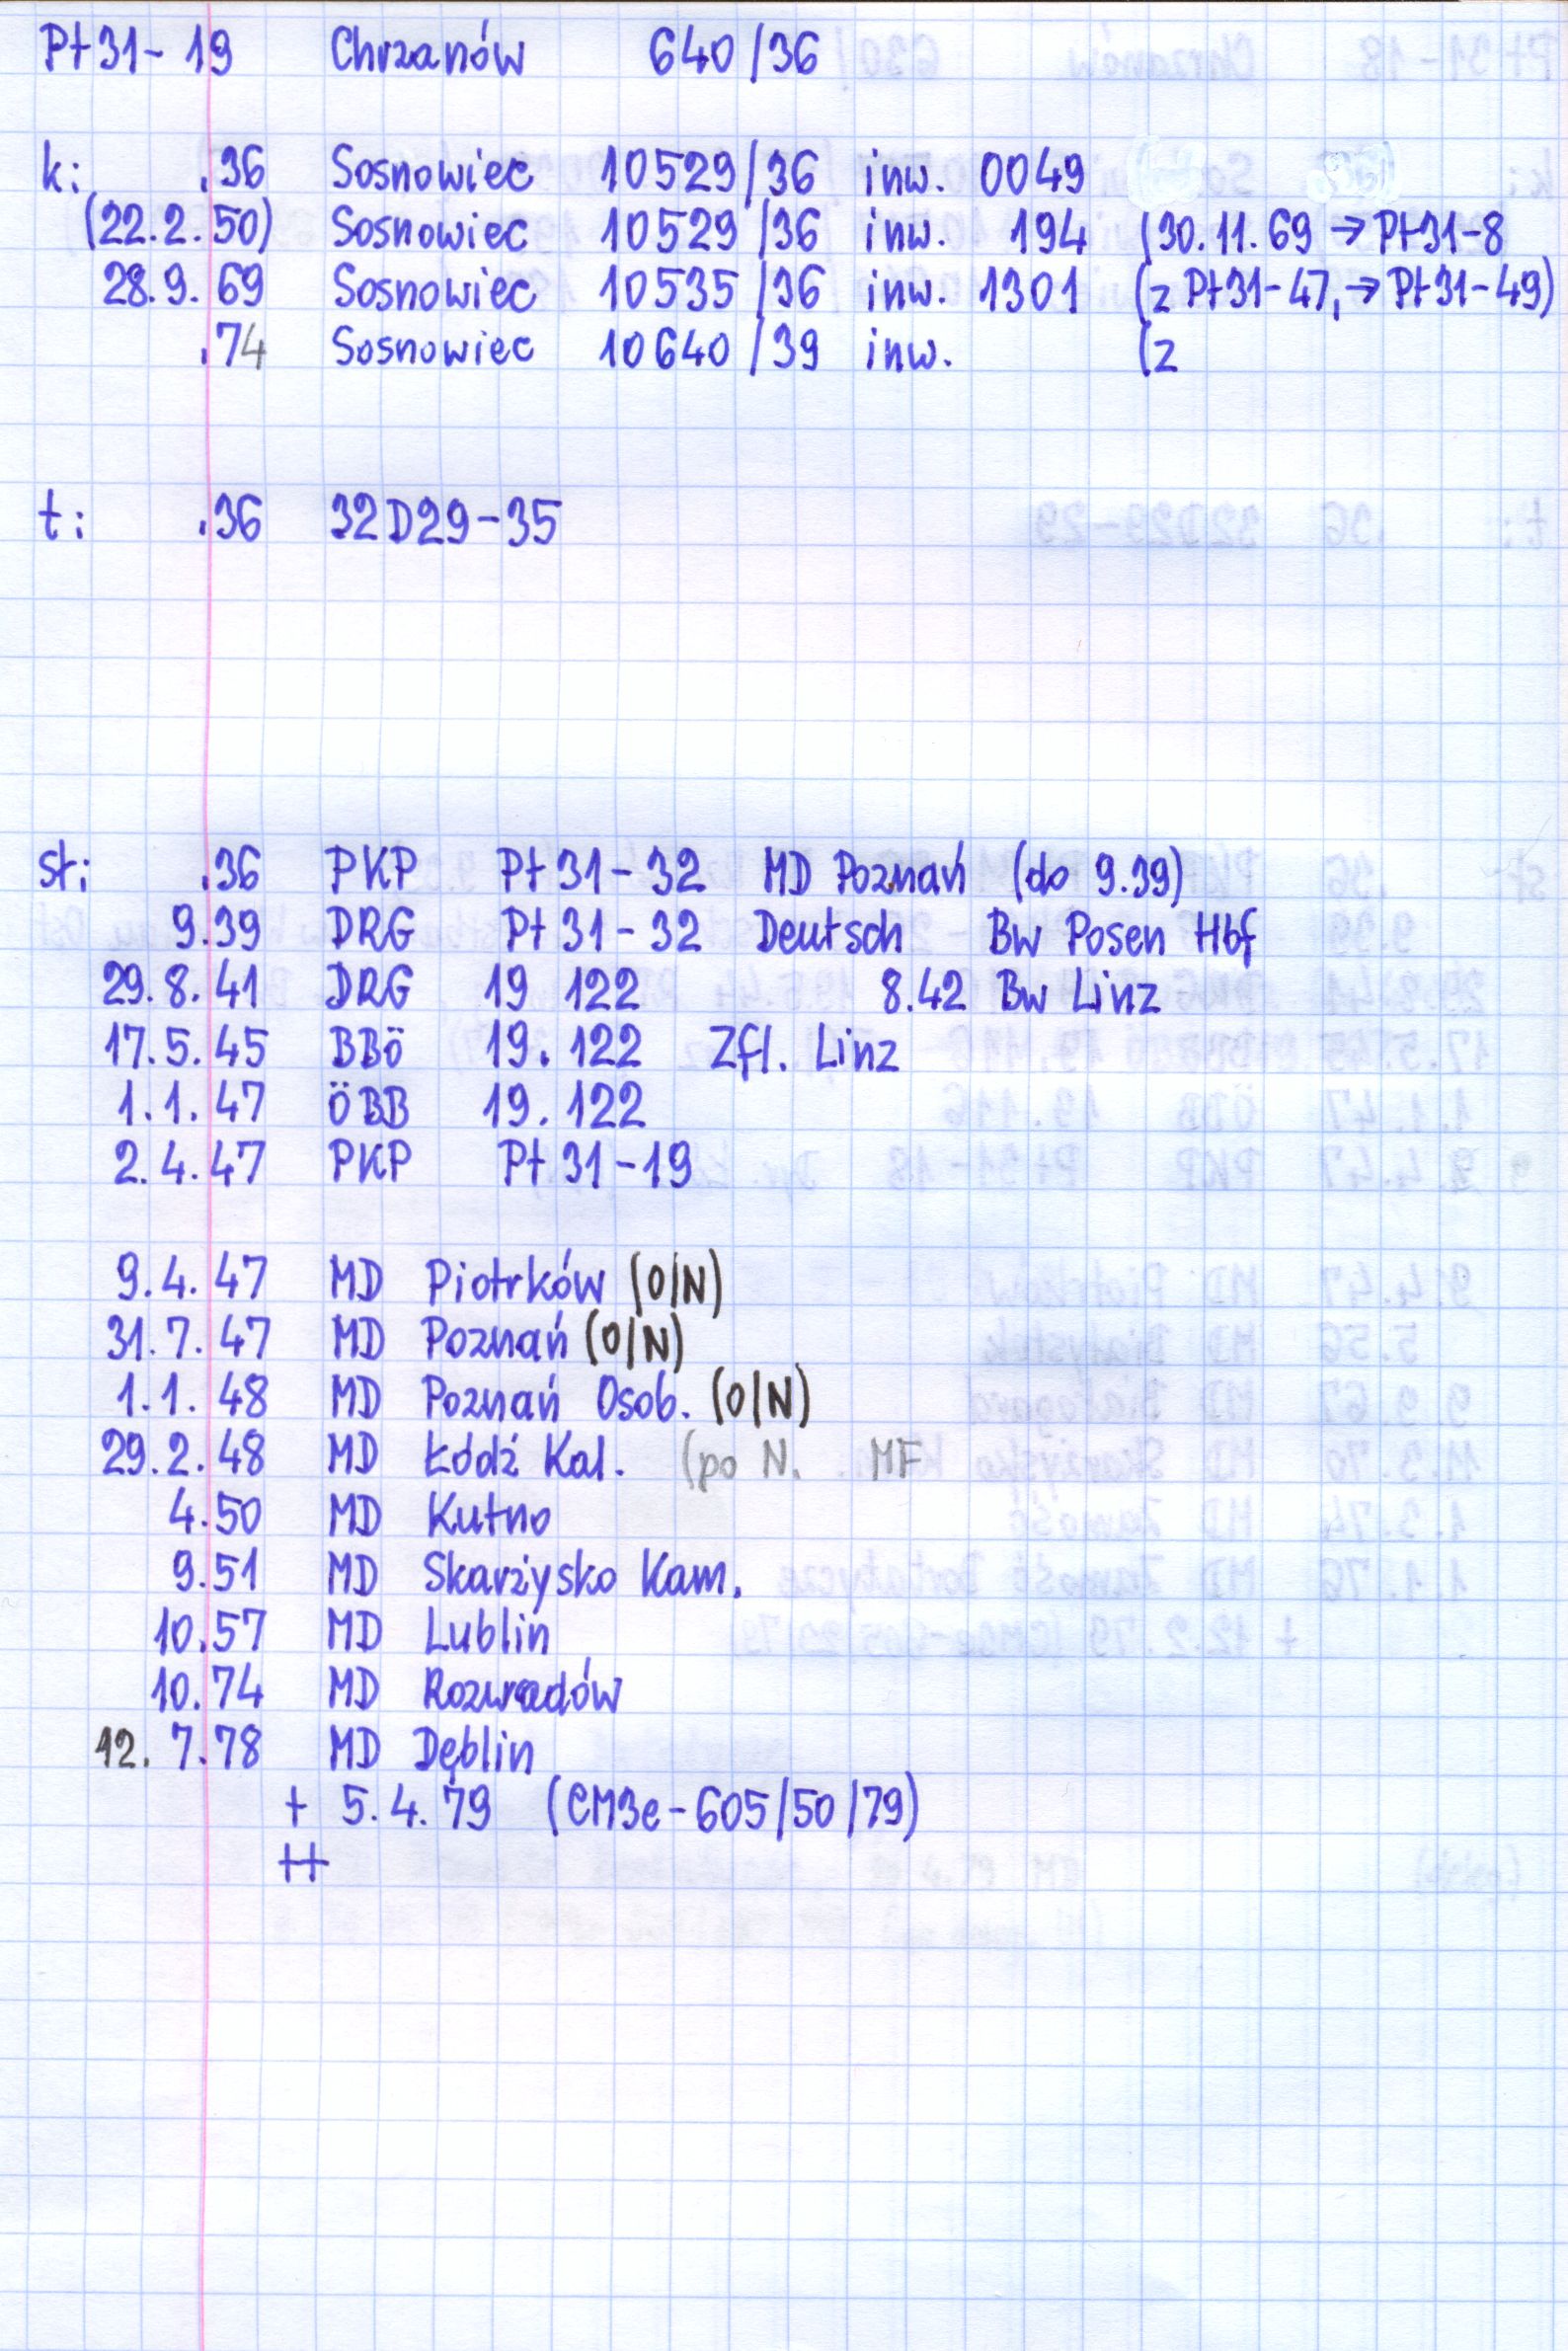 Pt31-19 Chrzanów 640/36
k: .36 Sosnowiec 10529/36 inw. 0049
(22.2.50) Sosnowiec 10529/36 inw. 194 (30.11.69 → Pt31-8
28.9.69 Sosnowiec 10535/36 inw. 1301 (z Pt31-47, → Pt31-49)
.74 Sosnowiec 10640/39 inw. (z
t: .36 32D29-35
st: .36 PKP Pt31-32 MD Poznań (do 9.39)
9.39 DRG Pt31-32 Deutsch Bw Posen Hbf
29.8.41 DRG 19 122 8.42 Bw Linz
17.5.45 BBö 19.122 Zfl. Linz
1.1.47 ÖBB 19.122
2.4.47 PKP Pt31-19
9.4.47 MD Piotrków (O/N)
31.7.47 MD Poznań (O/N)
1.1.48 MD Poznań Osob. (O/N)
29.2.48 MD Łódź Kal. (po N. MF
4.50 MD Kutno
9.51 MD Skarżysko Kam.
10.57 MD Lublin
10.74 MD Rozwadów
12.7.78 MD Dęblin
+ 5.4.79 (CM3e-605/50/79)
++